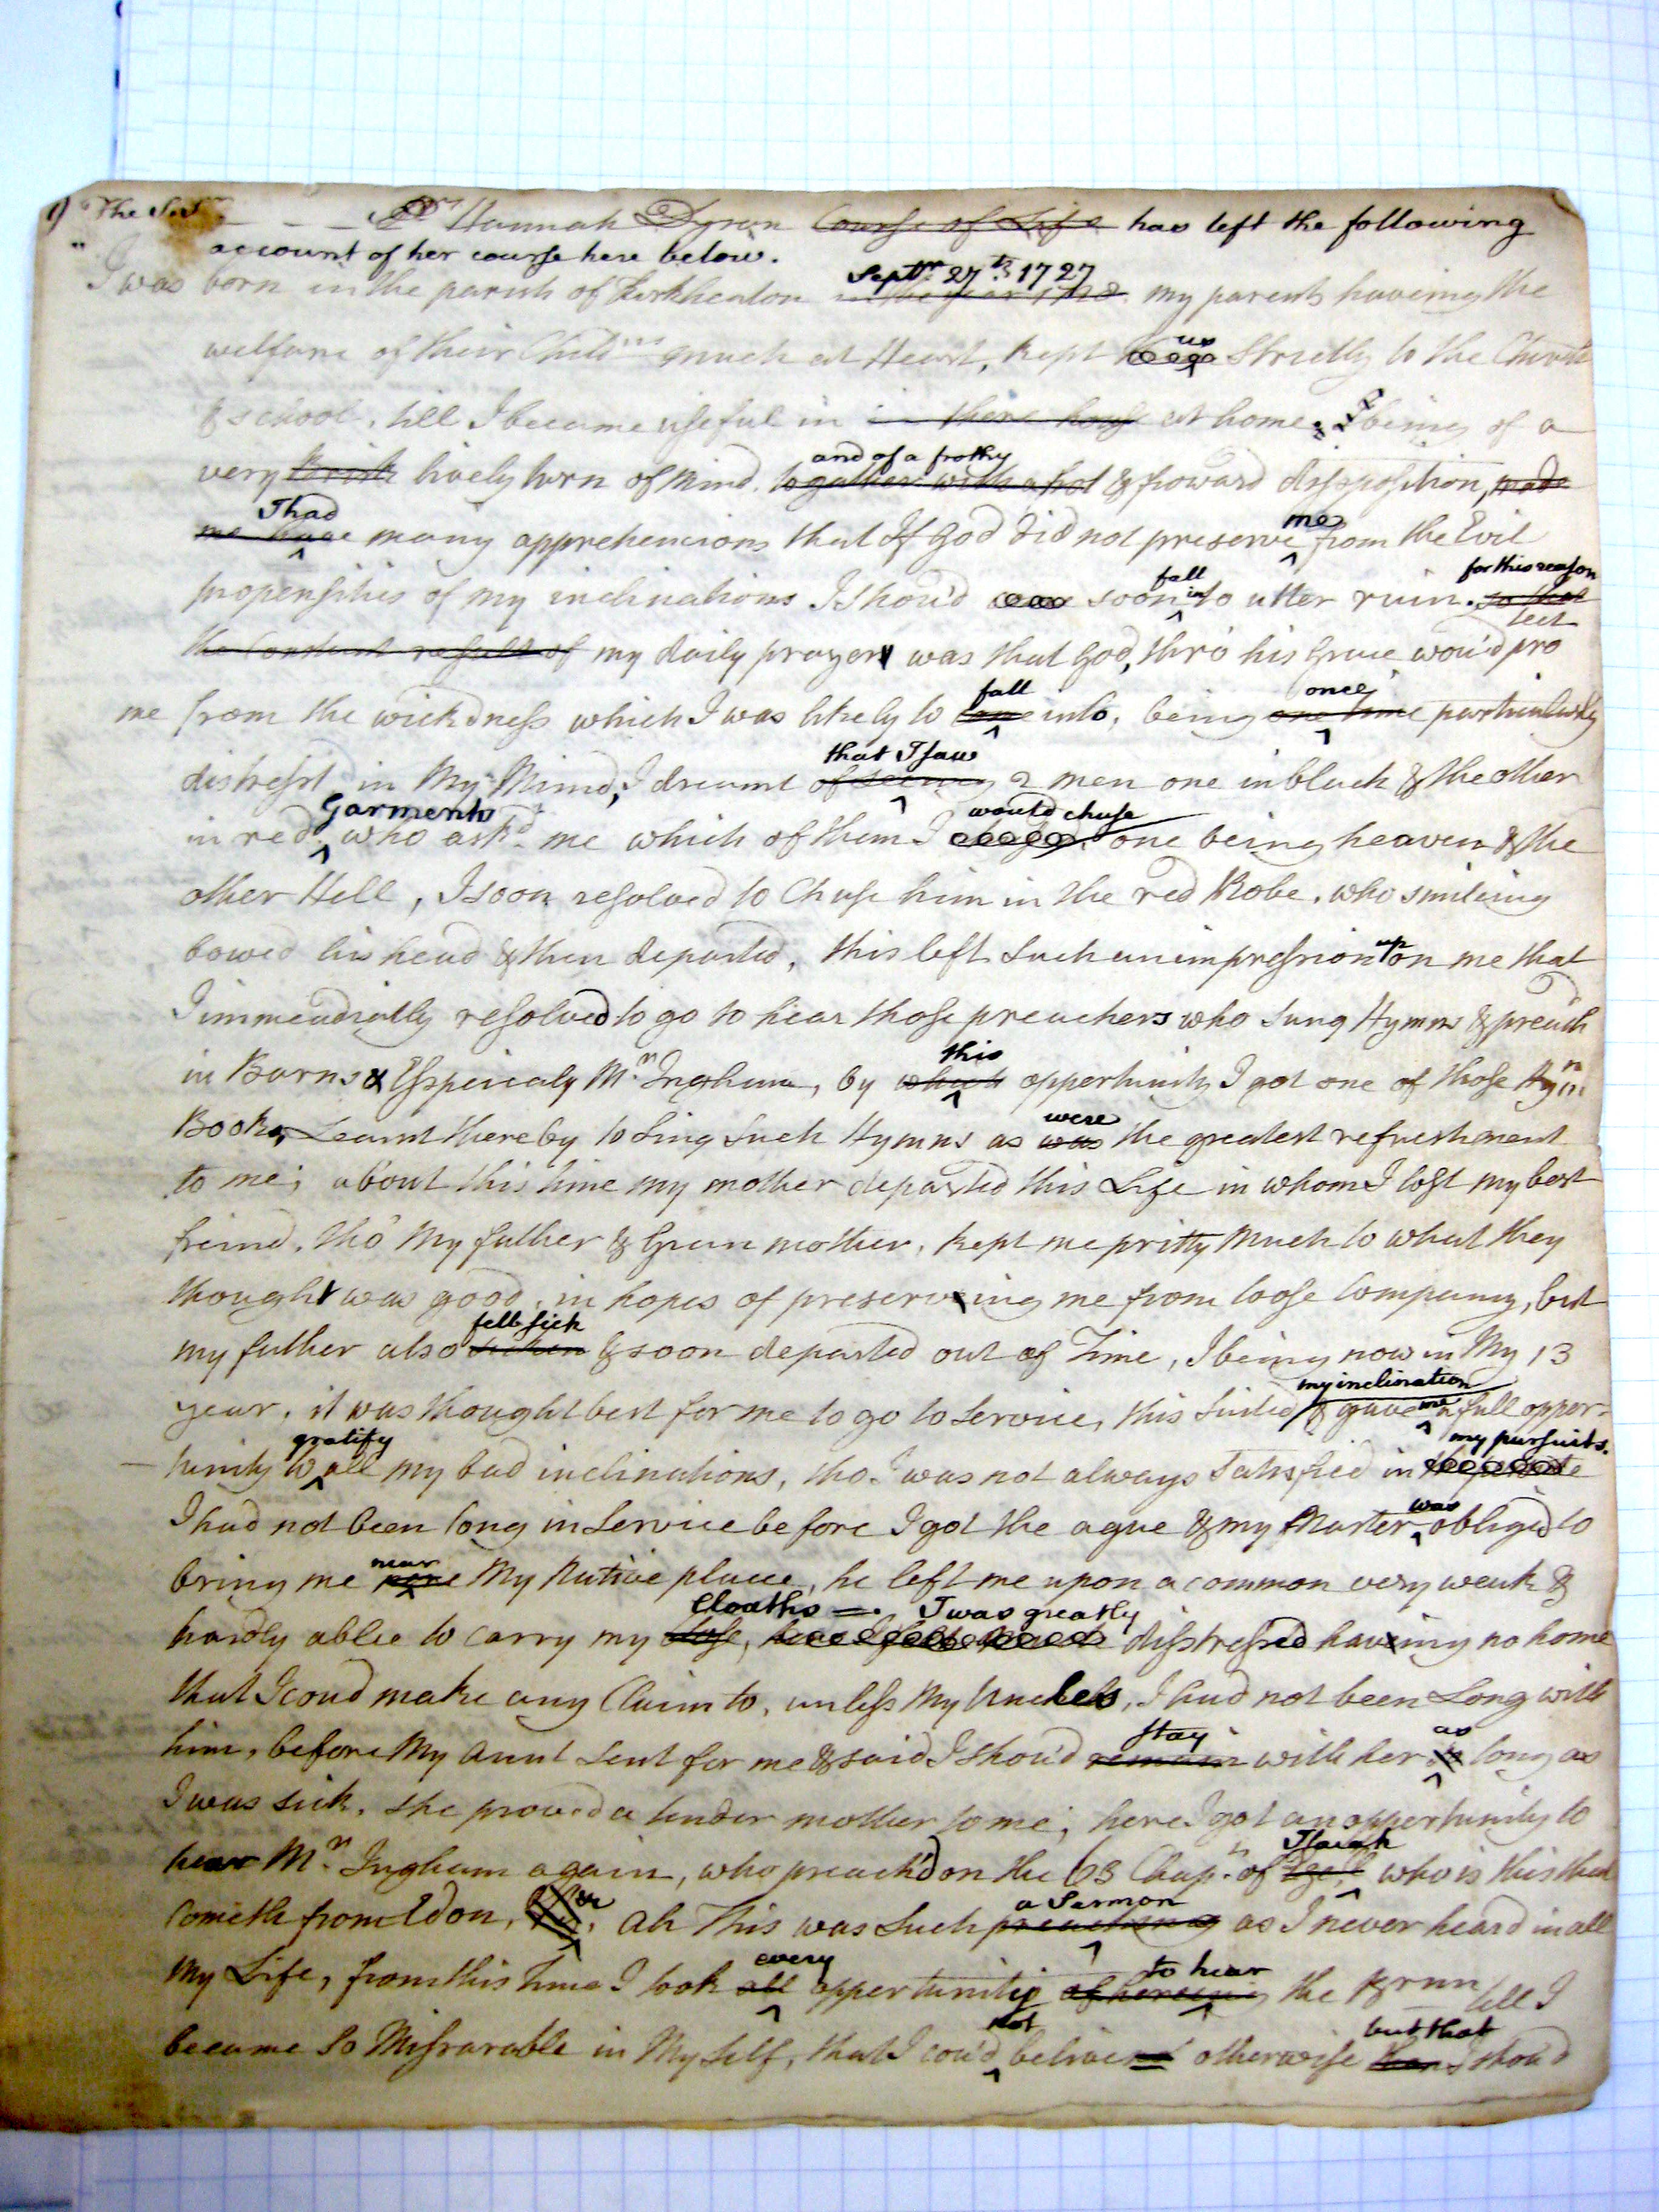 9) The Sr Sr. Hannah Dyson Course of Life has left the following
account of her course here below.
" I was born in the parish of Kirkheaton in the year 1728 Septbr 27th 1727 my parents haveing the
welfare of their Childrn much at Heart, kept us Strictly to the Church
& school, till I became useful in in there house at home. I being of a
very brisk lively turn of Mind. together with a hot and of a frothy & froward dissposition, made
me have I had many apprehencions that If God did not preserve me from the Evil
propensities of my inclinations I Shou'd soon fall into utter ruin. so that for this reason
the Constant result of my daily prayer was that God, thro' his Grace wou'd protect
me from the wickdness which I was likely to fall into, being one time once particularly
distresst in My Mind, I dreamt of seeing that I saw 2 men one in black & the other
in red Garments who ask'd me which of them I would chuse one being heaven & the
other Hell, I soon resolved to Chuse him in the red Robe, who smileing
bowed his head & then departed, this left such an impression upon me that
I immeadiatly resolved to go to hear those preachers who sung Hymns & preach
in Barns & Esspecialy Mr. Ingham, by which this oppertunity I got one of those Hymn
Books, Learnt thereby to Sing Such Hymns as was were the greatest refreshment
to me; about this time my mother departed this Life in whom I lost my best
freind, tho' My father & Gran mother, kept me pritty Much to what they
thought was good, in hopes of preserving me from loose Company, but
my father also sicken fell sick & soon departed out of Time, I being now in My 13
year, it was thought best for me to go to Service, this Suited my inclination & gave me a full oppor-
tunity to gratify all my bad inclinations, tho I was not always Satisfied in my pursuits.
I had not been long in Service before I got the ague & my Master was obliged to
bring me near My Native place, he left me upon a common very weak &
hardly able to carry my close, Cloaths —. I was greatly disstressed having no home
that I coud make any Claim to, unless My Uncles, I had not been Long with
him, before My Aunt Sent for me & said I shou'd remain stay with her so as long as
I was sick, she proved a tender mother to me; here I got an oppertunity to
hear Mr. Ingham again, who preach'd on the 63 Chap.r of Isaiah who is this that
Cometh from Edom, &c. Ah This was Such preaching a Sermon as I never heard in all
My Life, from this Time I took all every oppertunity of hereing to hear the Brnn till I
became So Missrarable in My Self, that I cou'd not believe otherwise than but that I shou'd